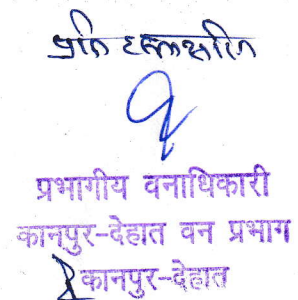 प्रति हस्ताक्षरित
प्रभागीय वनाधिकारी
कानपुर-देहात वन प्रभाग
कानपुर-देहात